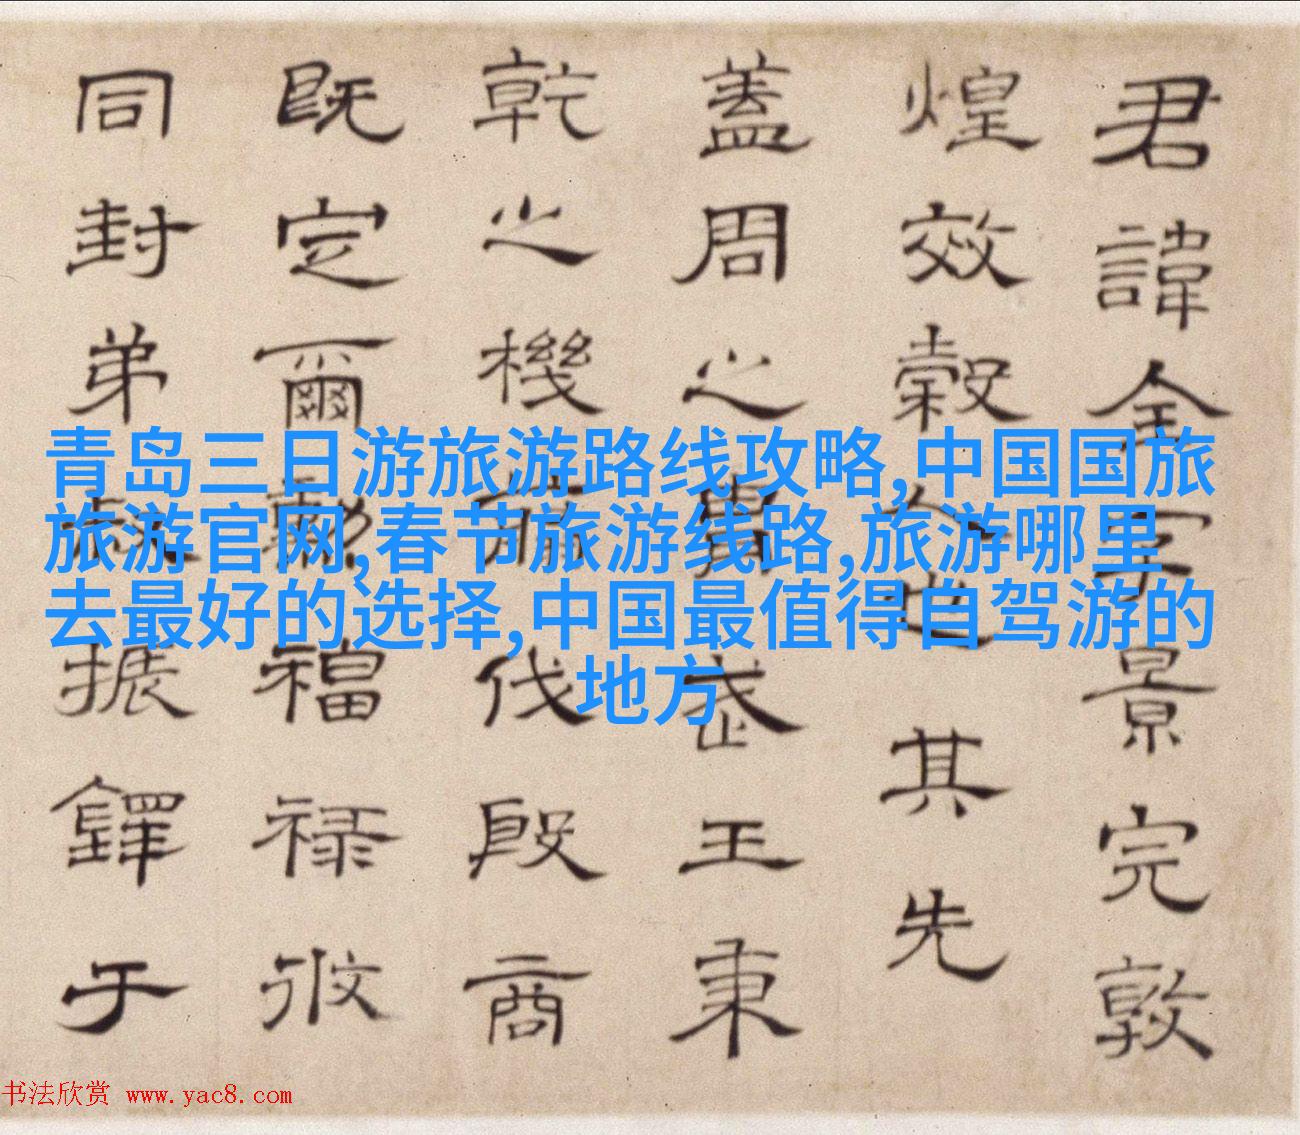 君諱全字景完敦
煌效穀人也其先
蓋周之胄武王秉
乾之機伐殷商
既定爾勳福祿攸
同封弟叔振鐸于
青岛三日游旅游路线攻略,中国国旅
旅游官网,春节旅游线路,旅游哪里
去最好的选择,中国最值得自驾游的
地方
书法欣赏 www.yac8.com